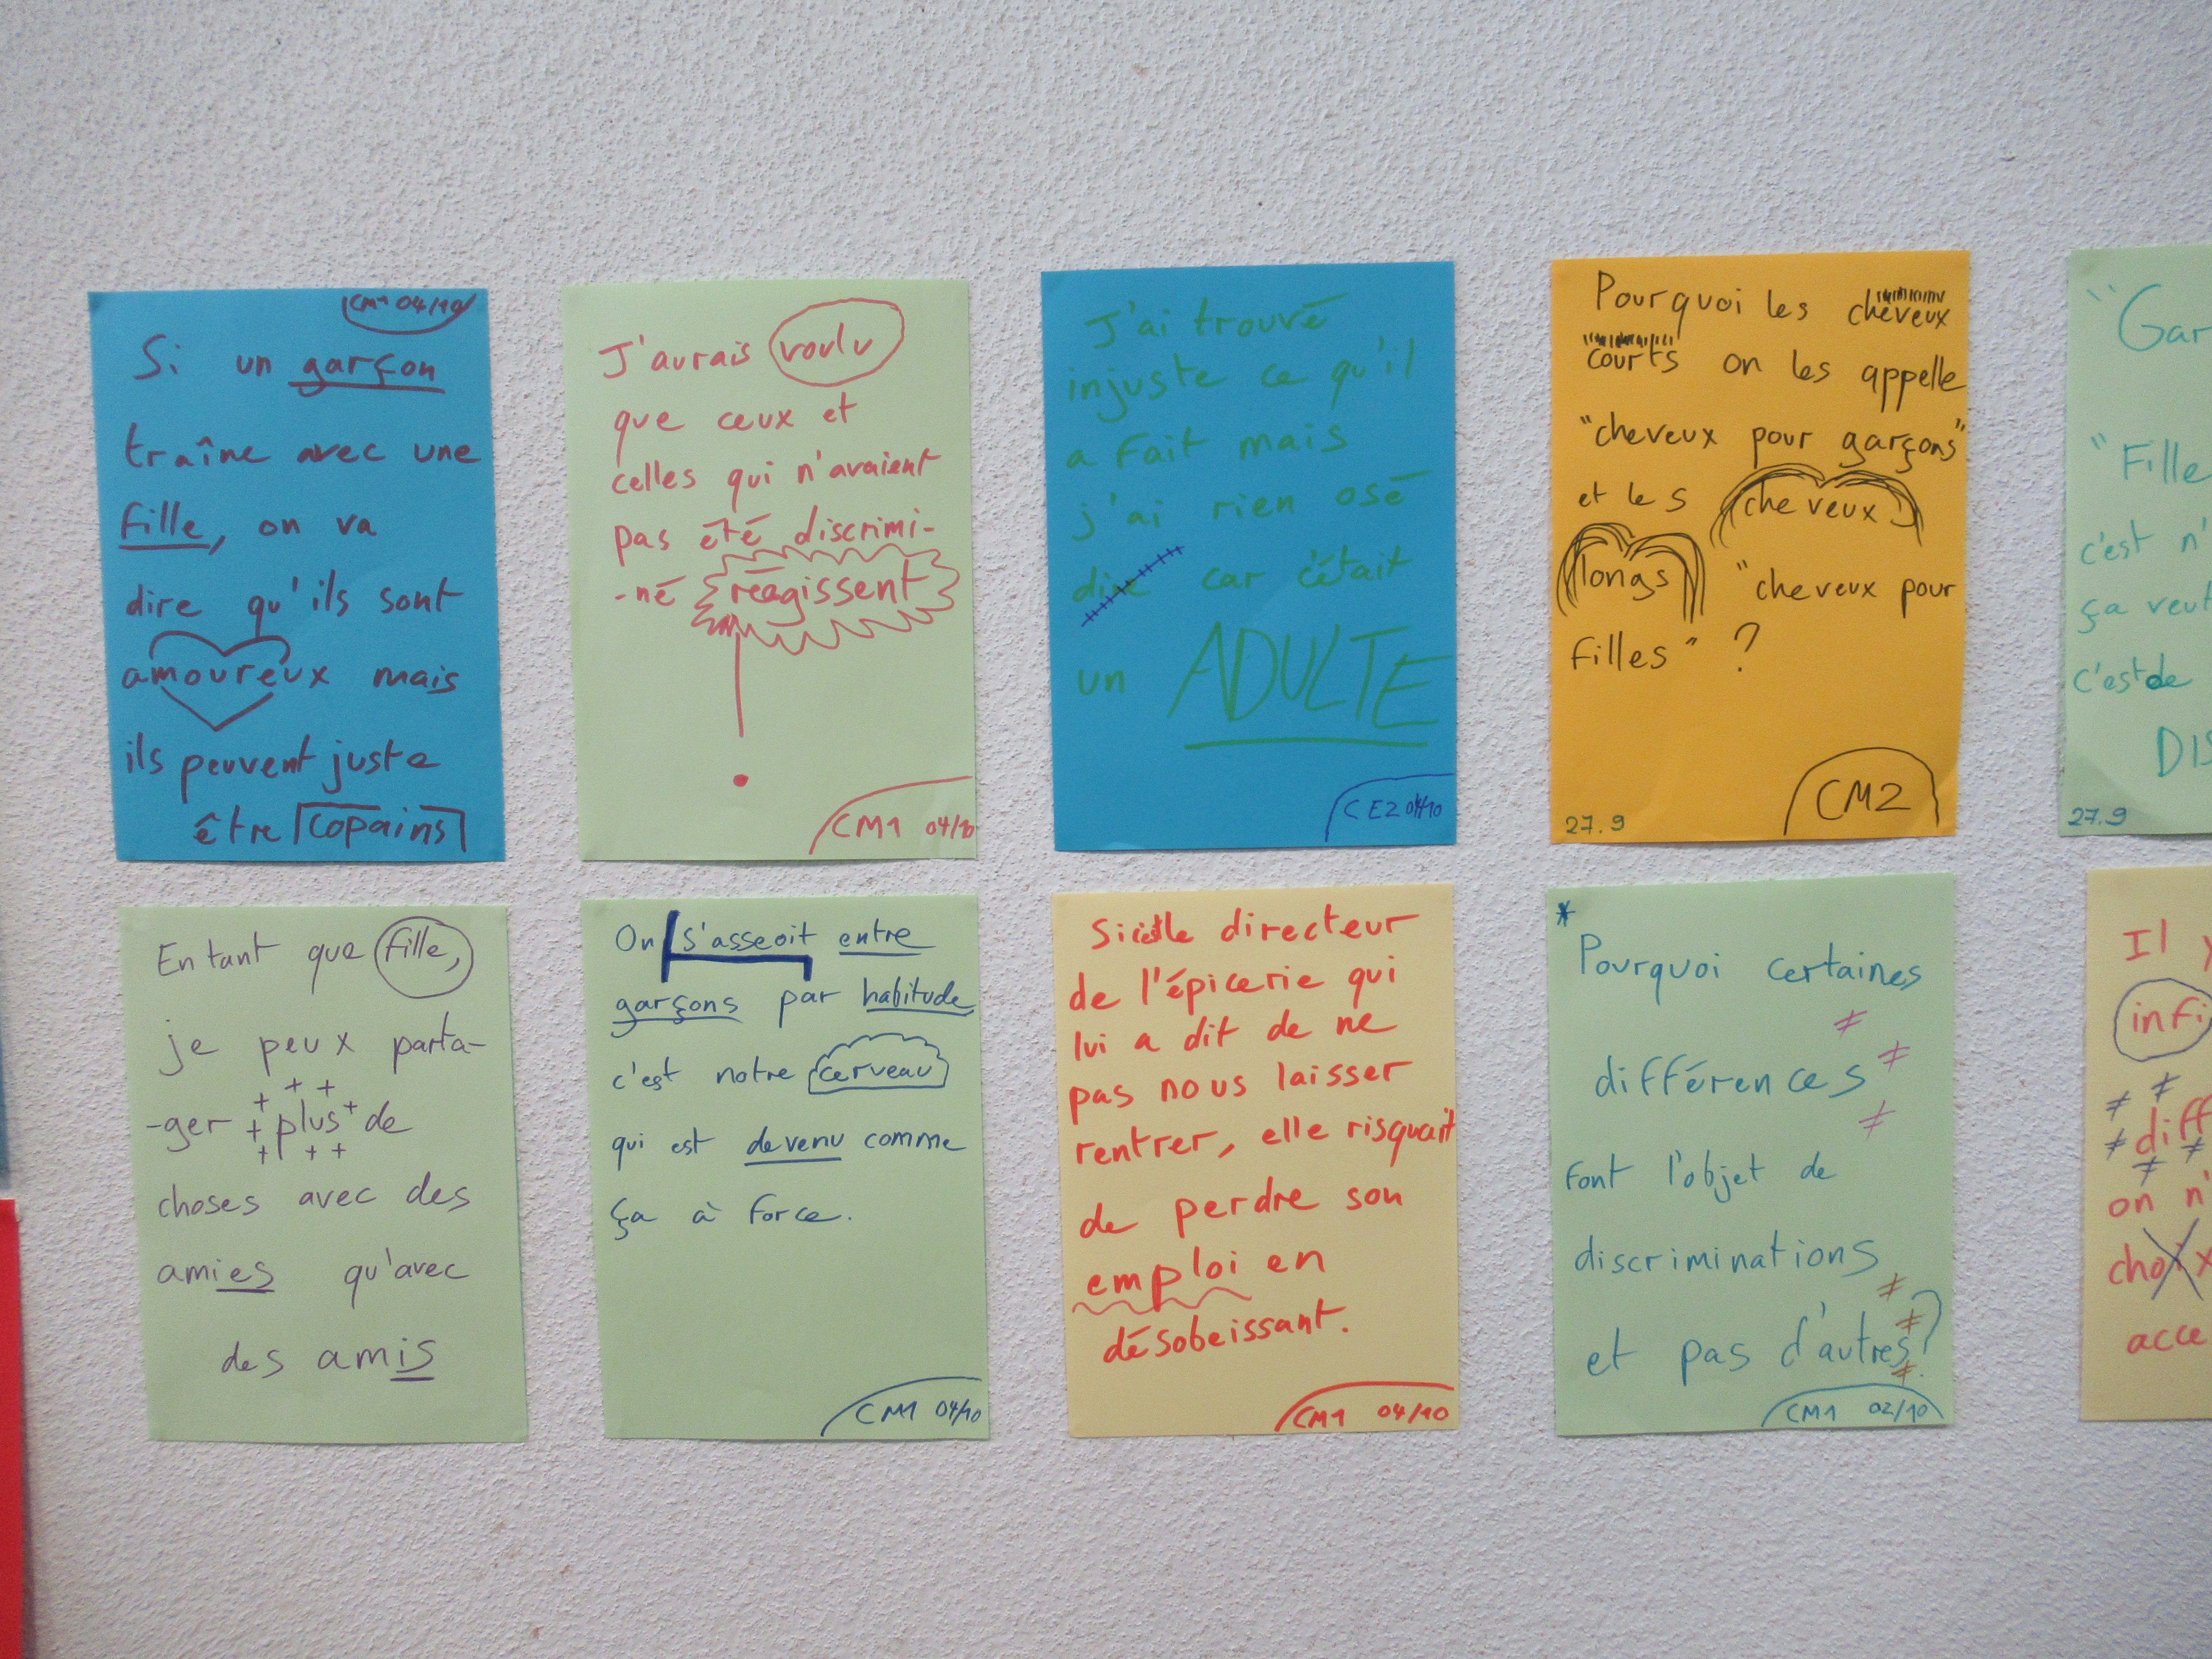 CM1 04/10
Si un garçon
traîne avec une
fille, on va
dire qu'ils sont
amoureux mais
ils peuvent juste
être copains
J'aurais voulu
que ceux et
celles qui n'avaient
pas été discrimi-
-né réagissent
CM1 04/10
J'ai trouvé
injuste ce qu'il
a fait mais
j'ai rien osé
dire car c'était
un ADULTE
CE2 04/10
Pourquoi les cheveux
courts on les appelle
"cheveux pour garçons"
et les cheveux
longs "cheveux pour
filles" ?
27.9 CM2
"Gar
"Fille
c'est n'
ça veut
c'est de
DIS
27.9
En tant que fille,
je peux parta-
-ger plus de
choses avec des
amies qu'avec
des amis
On s'asseoit entre
garçons par habitude
c'est notre cerveau
qui est devenu comme
ça à force.
CM1 04/10
Si c'est le directeur
de l'épicerie qui
lui a dit de ne
pas nous laisser
rentrer, elle risquait
de perdre son
emploi en
désobeissant.
CM1 04/10
*
Pourquoi certaines
≠
différences ≠
≠
font l'objet de
discriminations
et pas d'autres?
CM1 02/10
Il y
infi
diff
on n'
choix
acce